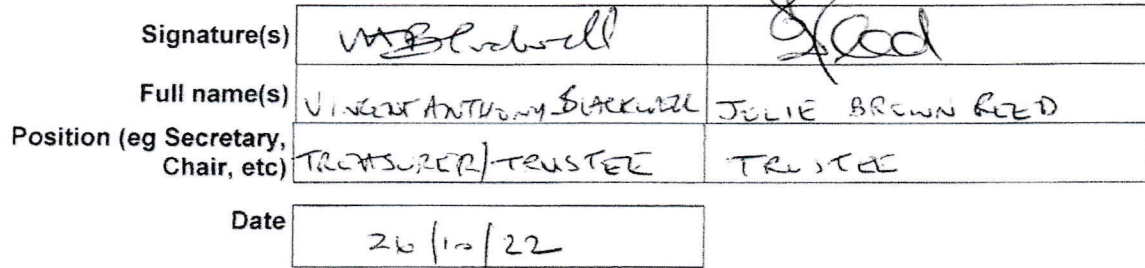 Signature(s) MBlackwell
Full name(s) VINCENT ANTHONY BLACKWELL JULIE BROWN REED
Position (eg Secretary,
Chair, etc) TREASURER/TRUSTEE TRUSTEE
Date 26/10/22